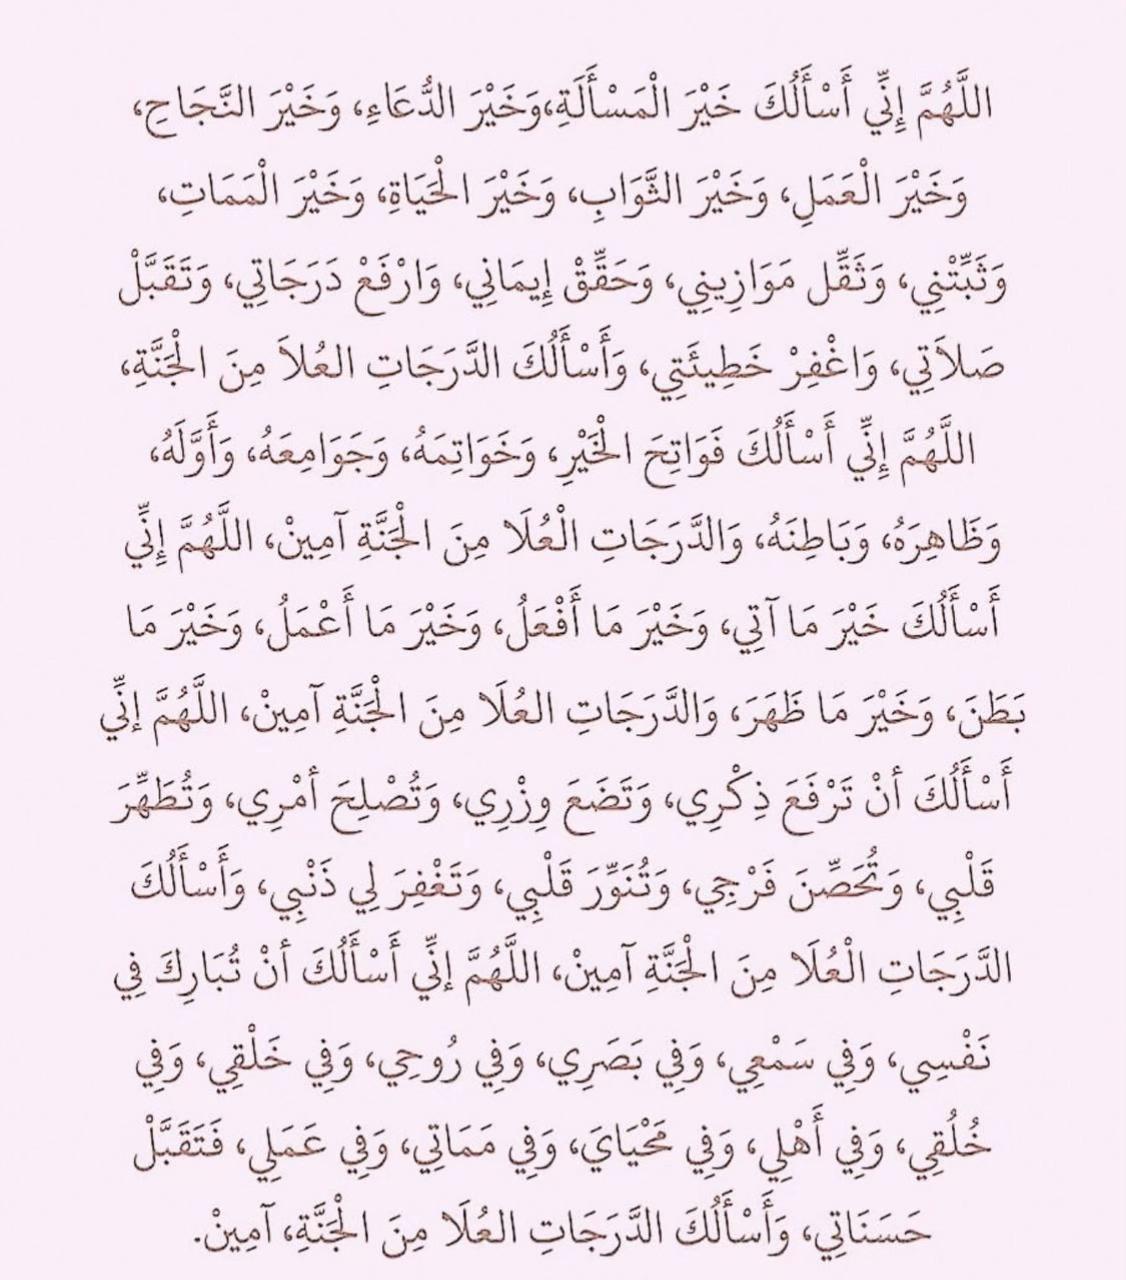 اللَّهُمَّ إِنِّي أَسْأَلُكَ خَيْرَ الْمَسْأَلَةِ،وَخَيْرَ الدُّعَاءِ، وَخَيْرَ النَّجَاحِ،
وَخَيْرَ الْعَمَلِ، وَخَيْرَ الثَّوَابِ، وَخَيْرَ الْحَيَاةِ، وَخَيْرَ الْمَمَاتِ،
وَثَبِّتْنِي، وَثَقِّل مَوَازِينِي، وَحَقِّقْ إِيمَانِي، وَارْفَعْ دَرَجَاتِي، وَتَقَبَّلْ
صَلاَتِي، وَاغْفِرْ خَطِيئَتِي، وَأَسْأَلُكَ الدَّرَجَاتِ العُلاَ مِنَ الْجَنَّةِ،
اللَّهُمَّ إِنِّي أَسْأَلُكَ فَوَاتِحَ الْخَيْرِ، وَخَوَاتِمَهُ، وَجَوَامِعَهُ، وَأَوَّلَهُ،
وَظَاهِرَهُ، وَبَاطِنَهُ، وَالدَّرَجَاتِ الْعُلَا مِنَ الْجَنَّةِ آمِينْ، اللَّهُمَّ إِنِّي
أَسْأَلُكَ خَيْرَ مَا آتِي، وَخَيْرَ مَا أَفْعَلُ، وَخَيْرَ مَا أَعْمَلُ، وَخَيْرَ مَا
بَطَنَ، وَخَيْرَ مَا ظَهَرَ، وَالدَّرَجَاتِ العُلَا مِنَ الْجَنَّةِ آمِينْ، اللَّهُمَّ إنِّي
أَسْأَلُكَ أنْ تَرْفَعَ ذِكْرِي، وَتَضَعَ وِزْرِي، وَتُصْلِحَ أمْرِي، وَتُطَهِّرَ
قَلْبِي، وَتُحَصِّنَ فَرْجِي، وَتُنَوِّرَ قَلْبِي، وَتَغْفِرَ لِي ذَنْبِي، وَأَسْأَلُكَ
الدَّرَجَاتِ الْعُلَا مِنَ الْجَنَّةِ آمِينْ، اللَّهُمَّ إنِّي أَسْأَلُكَ أنْ تُبَارِكَ فِي
نَفْسِي، وَفِي سَمْعِي، وَفِي بَصَرِي، وَفِي رُوحِي، وَفِي خَلْقِي، وَفِي
خُلُقِي، وَفِي أَهْلِي، وَفِي مَحْيَايَ، وَفِي مَمَاتِي، وَفِي عَمَلِي، فَتَقَبَّلْ
حَسَنَاتِي، وَأَسْأَلُكَ الدَّرَجَاتِ العُلَا مِنَ الْجَنَّةِ، آمِينْ.